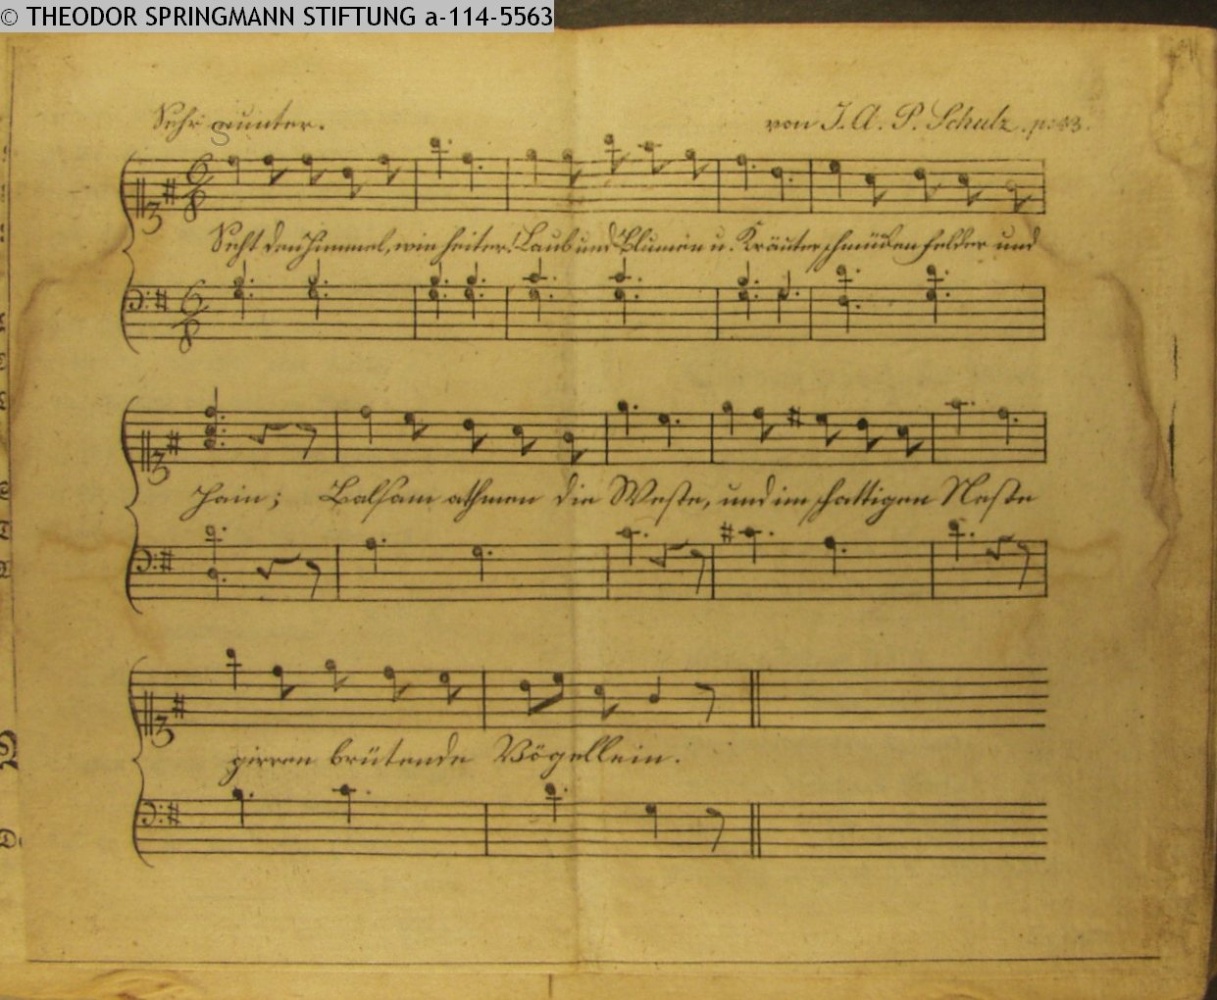 © THEODOR SPRINGMANN STIFTUNG a-114-5563
Sehr munter. von J. A. P. Schulz. p: 43.
Seht den Himmel, wie heiter! Laub und Blumen u. Kräuter schmücken Felder und
Hain; Balsam athmen die Weste, und im schattigen Neste
girren brütende Vögellein.